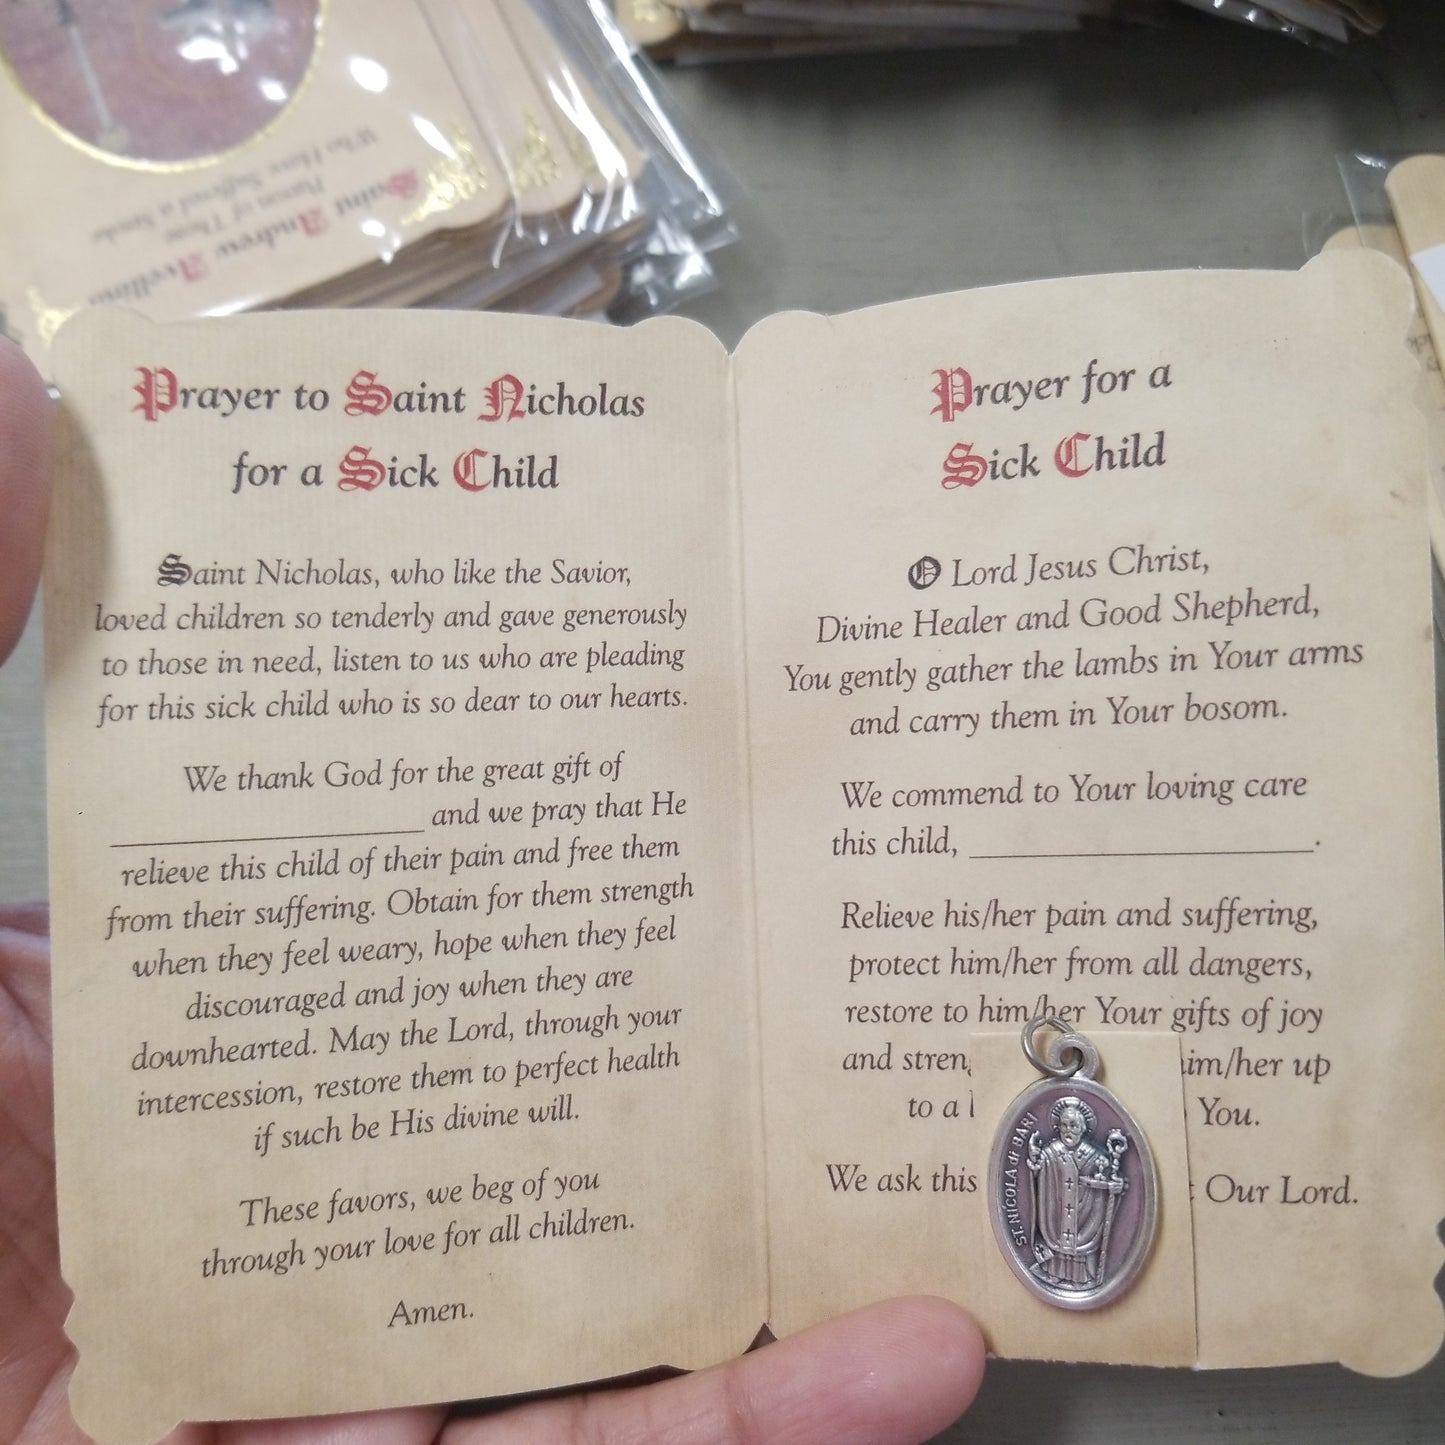 Saint Andrew Avellino
Patron of Those
Who Have Suffered a Stroke
Prayer to Saint Nicholas
for a Sick Child
Saint Nicholas, who like the Savior,
loved children so tenderly and gave generously
to those in need, listen to us who are pleading
for this sick child who is so dear to our hearts.
We thank God for the great gift of
and we pray that He
relieve this child of their pain and free them
from their suffering. Obtain for them strength
when they feel weary, hope when they feel
discouraged and joy when they are
downhearted. May the Lord, through your
intercession, restore them to perfect health
if such be His divine will.
These favors, we beg of you
through your love for all children.
Amen.
Prayer for a
Sick Child
O Lord Jesus Christ,
Divine Healer and Good Shepherd,
You gently gather the lambs in Your arms
and carry them in Your bosom.
We commend to Your loving care
this child, .
Relieve his/her pain and suffering,
protect him/her from all dangers,
restore to him/her Your gifts of joy
and him/her up
to a You.
We ask this Our Lord.
ST. NICOLA di BARI